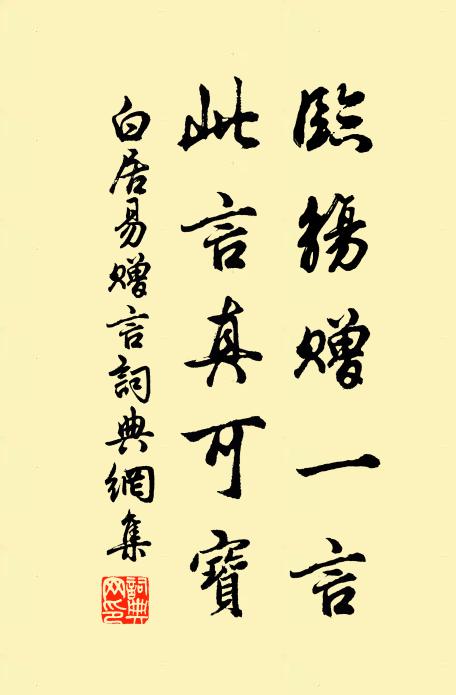 臨觴贈一言
此言真可寶
白居易贈言詞典網集
詞典网印